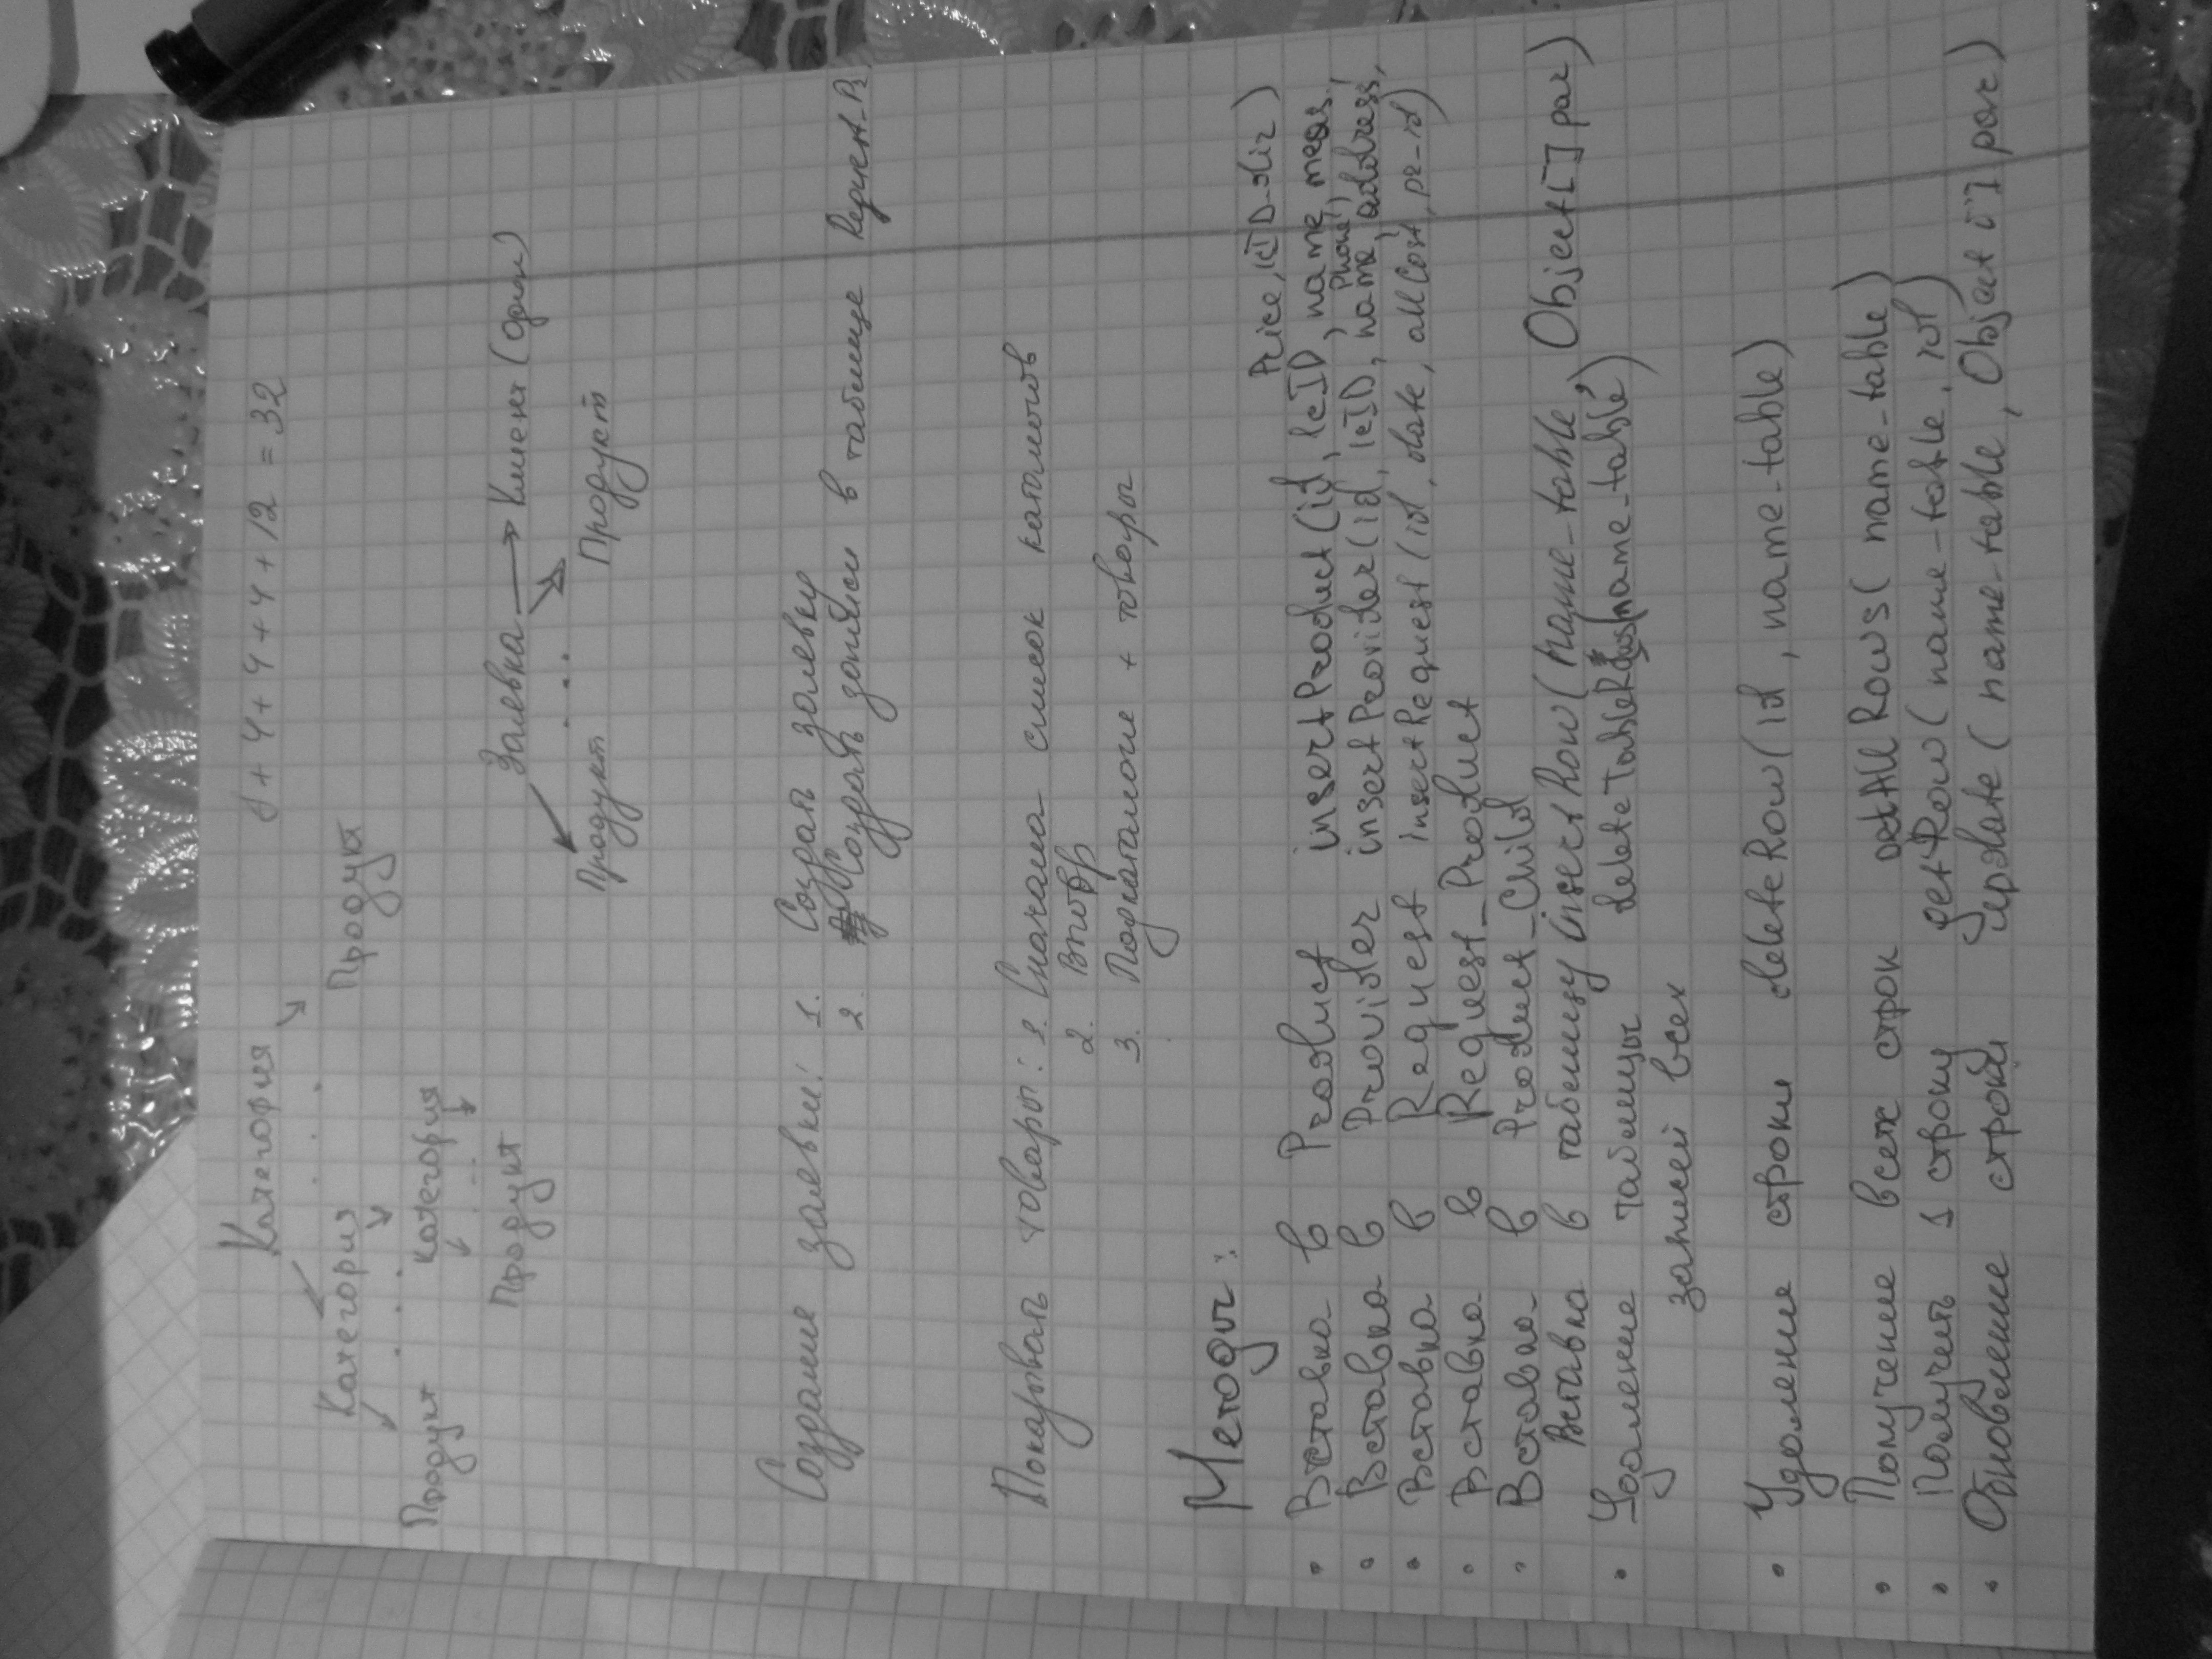 Категория
8 + 4 + 4 + 4 + 12 = 32
Категория . . . . Продукт
Продукт . . . . категория
Продукт
Заявка → Клиент (один)
Продукт . . . Продукт
Создание заявки: 1. Создать заявку
2. Создать записи в таблице Request_Pr
Показывать товары: 1. Сначала список каталогов
2.
3. Подкаталоги + товары
Методы:
Price, kID_dir)
• Вставка в Product insertProduct(id, kID, name, meas.,
Phone)
• Вставка в Provider insertProvider(id, kID, name, address,
• Вставка в Request insertRequest(id, date, allCost, pr_id)
• Вставка в Request_Product
• Вставка в Product_Child
Вставка в таблицу insertRow(name_table, Object[] par)
• Удаление таблицы deleteTableRows(name_table)
записей всех
• Удаление строки deleteRow(id, name_table)
• Получение всех строк getAllRows(name_table)
• Получить 1 строку getRow(name_table, id)
• Обновление строки update(name_table, Object[] par)